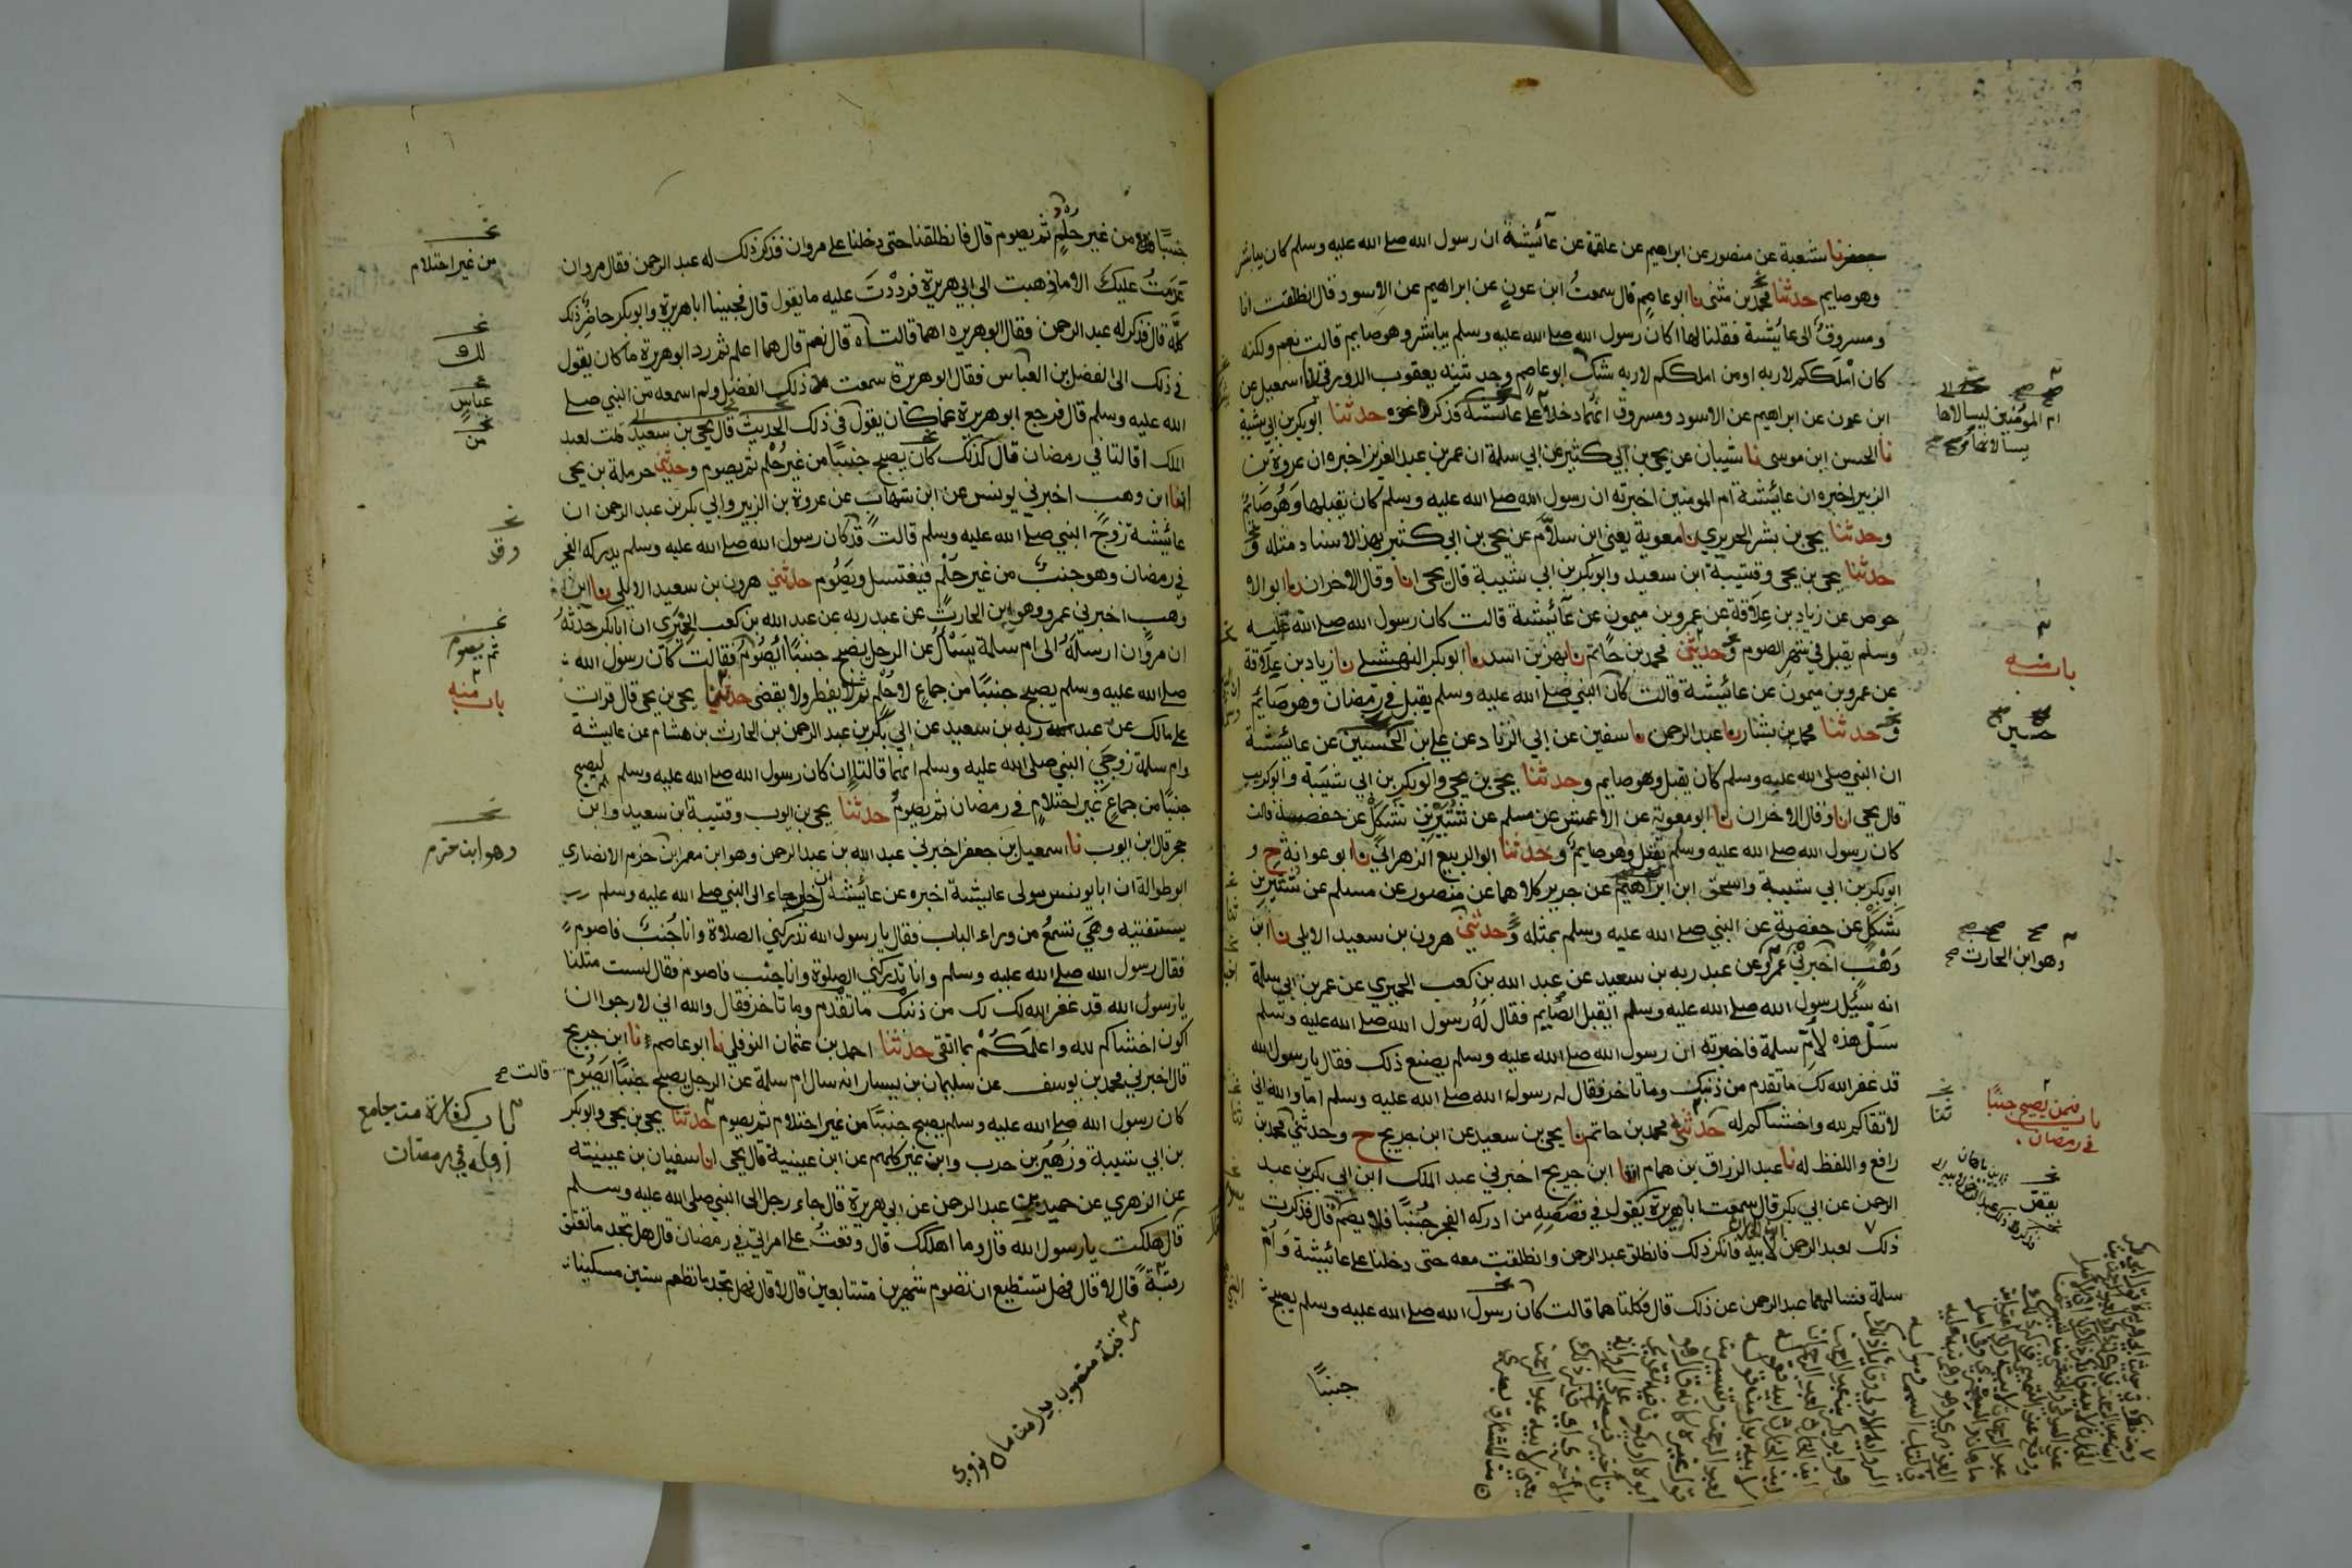 جعفر نا شعبة عن منصور عن ابراهيم عن علقمة عن عآئيشة ان رسول الله صلى الله عليه وسلم كان يباشر
وهو صايم حدثنا محمد بن مثنى نا ابو عاصم قال سمعت ابن عون عن ابراهيم عن الاسود قال انطلقت انا
ومسروق الى عايشة فقلنا لها اكان رسول الله صلى الله عليه وسلم يباشر وهو صايم قالت نعم ولكنه
كان املككم لاربه او من املككم لاربه شك ابو عاصم وحدثنيه يعقوب الدورقي نا اسمعيل عن
ابن عون عن ابراهيم عن الاسود ومسروق انهما دخلا على عائشة فذكر نحوه حدثنا ابو بكر بن ابي شيبة
نا الحسن ابن موسى نا شيبان عن يحيى بن ابي كثير عن ابي سلمة ان عمر بن عبد العزيز اخبره ان عروة بن
الزبير اخبره ان عائيشة ام المومنين اخبرته ان رسول الله صلى الله عليه وسلم كان يقبلها وهو صايم
وحدثنا يحيى بن بشر الحريري نا معوية يعنى ابن سلام عن يحيى بن ابي كثير بهذا الاسناد مثله
حدثنا يحيى بن يحيى وقتيبة ابن سعيد وابو بكر بن ابي شيبة قال يحيى انا وقال الاخران نا ابو الا
حوص عن زياد بن علاقة عن عمرو بن ميمون عن عآئيشة قالت كان رسول الله صلى الله عليه
وسلم يقبل في شهر الصوم وحدثني محمد بن حاتم نا بهز بن اسد نا ابو بكر النهشلي نا زياد بن علاقة
عن عمرو بن ميمون عن عائيشة قالت كان النبي صلى الله عليه وسلم يقبل في رمضان وهو صايم
وحدثنا محمد بن بشار نا عبد الرحمن نا سفين عن ابي الزناد عن علي بن الحسين عن عائيشة
ان النبي صلى الله عليه وسلم كان يقبل وهو صايم وحدثنا يحيى بن يحيى وابو بكر بن ابي شيبة وابو كريب
قال يحيى انا وقال الاخران نا ابو معوية عن الاعمش عن مسلم عن شتير بن شكل عن حفصة قالت
كان رسول الله صلى الله عليه وسلم يقبل وهو صايم وحدثنا ابو الربيع الزهراني نا ابو عوانة ح و
ابو بكر بن ابي شيبة واسحق ابن ابراهيم عن جرير كلاهما عن منصور عن مسلم عن شتير بن
شكل عن حفصة عن النبي صلى الله عليه وسلم بمثله وحدثني هرون بن سعيد الايلي نا ابن
وهب اخبرني عمرو عن عبد ربه بن سعيد عن عبد الله بن كعب الحميري عن عمر بن ابي سلمة
انه سئيل رسول الله صلى الله عليه وسلم ايقبل الصايم فقال له رسول الله صلى الله عليه وسلم
سل هذه لام سلمة فاخبرته ان رسول الله صلى الله عليه وسلم يصنع ذلك فقال يا رسول الله
قد غفر الله لك ما تقدم من ذنبك وما تاخر فقال له رسول الله صلى الله عليه وسلم اما والله اني
لاتقاكم لله واخشاكم له حدثني محمد بن حاتم نا يحيى بن سعيد عن ابن جريج ح وحدثني محمد بن
رافع واللفظ له نا عبد الرزاق بن همام انا ابن جريج اخبرني عبد الملك ابن ابي بكر بن عبد
الرحمن عن ابي بكر قال سمعت ابا هريرة يقول في قصصه من ادركه الفجر جنبا فلا يصم قال فذكرت
ذلك لعبد الرحمن لابيه فانكر ذلك فانطلق عبد الرحمن وانطلقت معه حتى دخلنا على عائيشة وام
سلمة فسالهما عبد الرحمن عن ذلك قال فكلتاهما قالت كان رسول الله صلى الله عليه وسلم يصبح
جنبا
ام المؤمنين ليسالاها
باب منه
حسين
وهو ابن الحارث
باب فيمن يصبح جنبا
في رمضان
ثنا
يقص
جنبا من غير حلم ثم يصوم قال فانطلقنا حتى دخلنا على مروان فذكر ذلك له عبد الرحمن فقال مروان
عزمت عليك الا ما ذهبت الى ابي هريرة فرددت عليه ما يقول قال فجيينا ابا هريرة وابو بكر حاضر ذلك
كله قال فذكر له عبد الرحمن فقال ابو هريره اهما قالتاه قال نعم قال هما اعلم ثم رد ابو هريرة ما كان يقول
في ذلك الى الفضل بن العباس فقال ابو هريرة سمعت ذلك الفضل ولم اسمعه من النبي صلى
الله عليه وسلم قال فرجع ابو هريرة عما كان يقول في ذلك الحديث قال يحيى بن سعيد قلت لعبد
الملك اقالتا في رمضان قال كذلك كان يصبح جنبا من غير حلم ثم يصوم وحدثني حرملة بن يحيى
انا ابن وهب اخبرني يونس عن ابن شهاب عن عروة بن الزبير وابي بكر بن عبد الرحمن ان
عائيشة زوج النبي صلى الله عليه وسلم قالت قد كان رسول الله صلى الله عليه وسلم يدركه الفجر
في رمضان وهو جنب من غير حلم فيغتسل ويصوم حدثني هرون بن سعيد الايلي نا ابن
وهب اخبرني عمرو وهو ابن الحارث عن عبد ربه عن عبد الله بن كعب الحميري ان ابا بكر حدثه
ان مروان ارسله الى ام سلمة يسأل عن الرجل يصبح جنبا ايصوم فقالت كان رسول الله
صلى الله عليه وسلم يصبح جنبا من جماع لا حلم ثم لا يفطر ولا يقضي حدثني يحيى بن يحيى قال قرات
على مالك عن عبد ربه بن سعيد عن ابي بكر بن عبد الرحمن بن الحارث بن هشام عن عايشة
وام سلمة زوجي النبي صلى الله عليه وسلم انهما قالتا ان كان رسول الله صلى الله عليه وسلم ليصبح
جنبا من جماع غير احتلام في رمضان ثم يصوم حدثنا يحيى بن ايوب وقتيبة ابن سعيد وابن
حجر قال ابن ايوب نا اسمعيل بن جعفر اخبرني عبد الله بن عبد الرحمن وهو ابن معمر بن حزم الانصاري
ابو طوالة ان ابا يونس مولى عايشة اخبره عن عائيشة ان رجلا جاء الى النبي صلى الله عليه وسلم
يستفتيه وهي تسمع من وراء الباب فقال يا رسول الله تدركني الصلاة وانا جنب فاصوم
فقال رسول الله صلى الله عليه وسلم وانا تدركني الصلوة وانا جنب فاصوم فقال لست مثلنا
يا رسول الله قد غفر الله لك لك من ذنبك ما تقدم وما تاخر فقال والله اني لارجوا ان
اكون اخشاكم لله واعلمكم بما اتقي حدثنا احمد بن عثمان النوفلي نا ابو عاصم نا ابن جريج
قال اخبرني محمد بن يوسف عن سليمان بن يسار انه سال ام سلمة عن الرجل يصبح جنبا ايصوم
كان رسول الله صلى الله عليه وسلم يصبح جنبا من غير احتلام ثم يصوم حدثنا يحيى بن يحيى وابو بكر
بن ابي شيبة وزهير بن حرب وابن نمير كلهم عن ابن عيينة قال يحيى انا سفيان بن عيينة
عن الزهري عن حميد بن عبد الرحمن عن ابي هريرة قال جاء رجل الى النبي صلى الله عليه وسلم
قال هلكت يا رسول الله قال وما اهلكك قال وقعت على امراتي في رمضان قال هل تجد ما تعتق
رقبة قال لا قال فهل تستطيع ان تصوم شهرين متتابعين قال لا قال فهل تجد ما تطعم ستين مسكينا
من غير احتلام
لك
عباس
من
وقد
ثم يصوم
باب منه
وهو ابن حزم
قالت
باب كفارة من جامع
اهله في رمضان
رقبة منصوب بدل من ما نووي